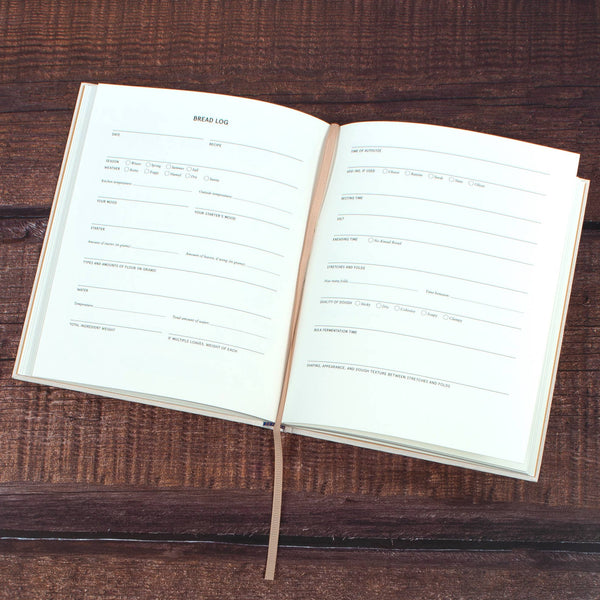 BREAD LOG
DATE RECIPE
SEASON Winter Spring Summer Fall
WEATHER Rainy Foggy Humid Dry Sunny
Kitchen temperature Outside temperature
YOUR MOOD YOUR STARTER'S MOOD
STARTER
Amount of starter (in grams) Amount of leaven, if using (in grams)
TYPES AND AMOUNTS OF FLOUR (IN GRAMS)
WATER
Temperature Total amount of water
TOTAL INGREDIENT WEIGHT IF MULTIPLE LOAVES, WEIGHT OF EACH
TIME OF AUTOLYSE
ADD-INS, IF USED
RESTING TIME
SALT
KNEADING TIME No-Knead Bread
STRETCHES AND FOLDS
How many folds Time between
QUALITY OF DOUGH Sticky Dry Cohesive Soupy Clumpy
BULK FERMENTATION TIME
SHAPING, APPEARANCE, AND DOUGH TEXTURE BETWEEN STRETCHES AND FOLDS